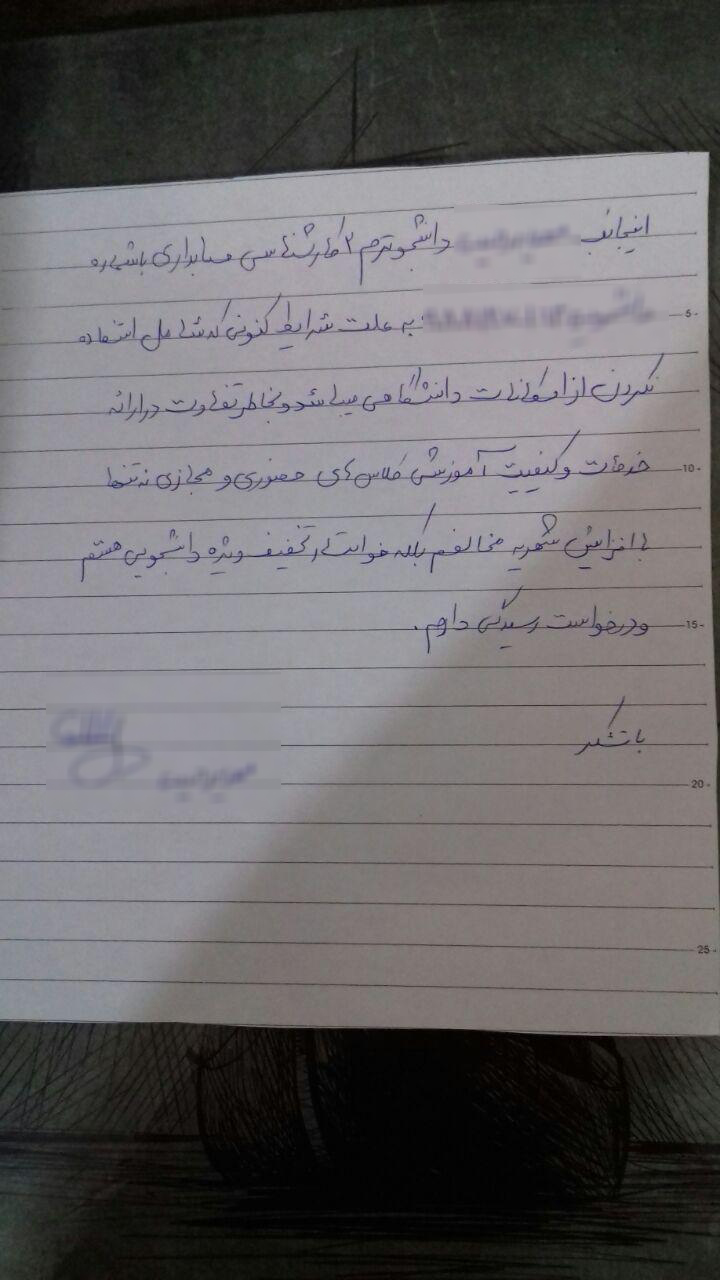 اینجانب دانشجو ترم ۲ کارشناسی حسابداری باشماره
5
به علت شرایط کنونی که شامل استفاده
نکردن از امکانات دانشگاهی میباشد و بخاطر تفاوت در ارائه
خدمات و کیفیت آموزشی کلاس های حضوری و مجازی نه تنها
10
با افزایش شهریه مخالفم بلکه خواستار تخفیف ویژه دانشجویی هستم
و درخواست رسیدگی دارم.
15
با تشکر
20
25